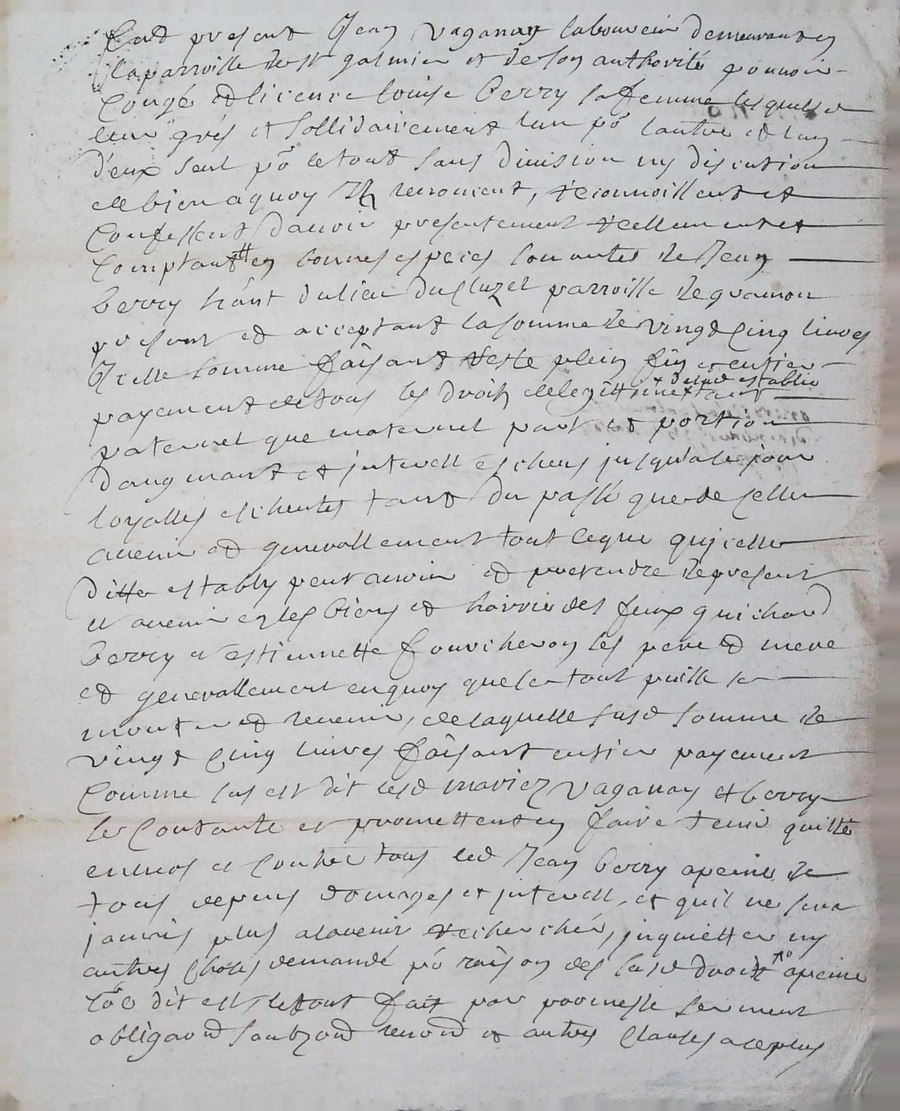 Est present Jean Vaganay laboureur demeurant en
la parroisse de st galmier et de son authorité pouvoir
Congé et licence louise berry sa femme lesquels de
leur grés et sollidairement lun po lautre et lun
deux seul po le tout sans division ny discution
de bien a quoy Ilz renoncent, reconnoissent et
Confessent davoir presentement reellement et
Comptant en bonnes especes sonantes de Jean
berry hant du lieu du Cluzel parroisse de
present et acceptant la somme de vingt Cinq livres
Icelle somme faisant reste plein fin et entier
payement de tous les droitz de legittime tant
x deladte establie
paternel que maternel part et portion
daugmant et interestz escheus jusqua ce jour
loyalles escheutes tant du passé que de celles
avenir et generallement tout ce que quicelle
ditte establÿ peut avoir et pretendre de present
et avenir es les biens et hoirie des feux guichard
berry et estiennette fourcheron ses pere et mere
et generallement en quoy que le tout puisse se
monter et revenir, de laquelle susd somme de
vingt Cinq livres faisant entier payement
Comme sus est dit lesd mariez vaganay et berry
se Contante et promettent en faire tenir quitte
envers et Contre tous led Jean berry a peine de
tous depens domages et interestz, et quil ne sera
jamais plus alavenir recherché, inquietter ny
autres Choses demandé po raison des susd droitz a peine
Coe dit est le tout fait par promesse serment
obligaond soubzond renond et autres Clauses ace plus